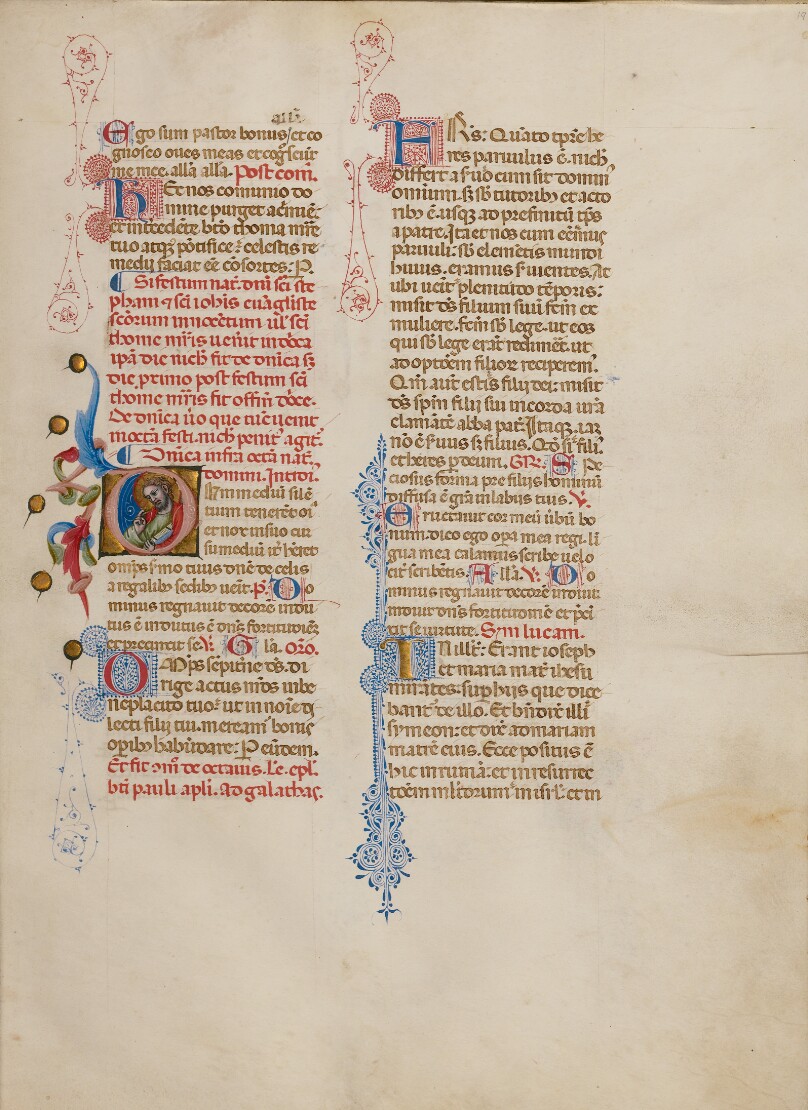 alla.
Ego sum pastor bonus, et co
gnosco oues meas et cognoscūt
me mee. alla alla. Post com̄.
Hec nos cōmunio do
mine purget a crimīe:
et intercedēte bto thoma mr̄e
tuo atq; pōtifice: celestis re
medij faciat eē cōsortes: P.
Si festum nat. dnī sci ste
phani ⁊ sci iohis euāgliste
scōrum innocētum ul̓ sci
thome mr̄is uenit in dn̄ca
ipā die nich̓ fit de dnīca sꝫ
die primo post festum sci
thome mr̄is fit offm̄ dn̄ce.
De dnīca u̓o que tūc uenit
in octā festi. nich̓ penit̓ agit̓.
Dnīca infra octā nat̄.
domini. Introi.
Dum mediū silē
tium tenerēt oī
et nox in suo cur
su mediū it̓ hr̄et
omps sermo tuus dnē de celis
a regalib; sedib; uēit. p̄. Do
minus regnauit decorē indu
tus ē indutus ē dn̄s fortitudinē
et precinxit se. V̄. Gl̄a. Orō.
Omps sempitne ds̄. di
rige actus nros in be
neplacito tuo: ut in noīe di
lecti filij tui. meream̄ bonis
opib; habūdare: P eūdem.
Et fit 9m̄. de octauis. Lc̄. epl̄.
bti pauli apli. Ad galathas.
Frs̄: Quāto tp̄re he
res paruulus ē. nich̓
differt a s̓uo cum sit domin̓
omnium. sꝫ sb̄ tutorib; et acto
rib; ē. usq; ad prefinitū tps̄
a patre. Ita et nos cum eēmus
paruuli: sb̄ elemētis mundi
huius. eramus s̓uientes. At
ubi uēit plenitudo tēporis:
misit ds̄ filium suū fcm̄ ex
muliere. fcm̄ sb̄ lege. ut eos
qui sb̄ lege erāt redimēt. ut
adoptōem filior̄ recipemus.
Qm̄ aut̄ estis filij dei: misit
ds̄ spm̄ filij sui in corda ur̄a
clamātē abba pat̄. Itaq;. iā
nō ē s̓uus sꝫ filius. Qd̄ si fili̓.
et heres p deum. GR. Spe
ciosus forma pre filijs hominū
diffusa ē grā in labijs tuis. V̄.
Eructauit cor meū ūbū bo
num. dico ego opa mea regi. lī
gua mea calamus scribe uelo
cit̓ scribētis. Alla. V̄. Do
minus regnauit decorē induit.
induit dn̄s fortitudinē et p̄ci
xit se uirtute. Scm̄ lucam.
In illt̄: Erant ioseph
et maria mat̄ ihesu
mirātes. sup his que dice
bant̄ de illo. Et bn̄dix̄ illi
symeon: et dix̄ ad mariam
matrē eius. Ecce positus ē
hic in ruinā: et in resurrec
tōem multorum in isrl̄: et in